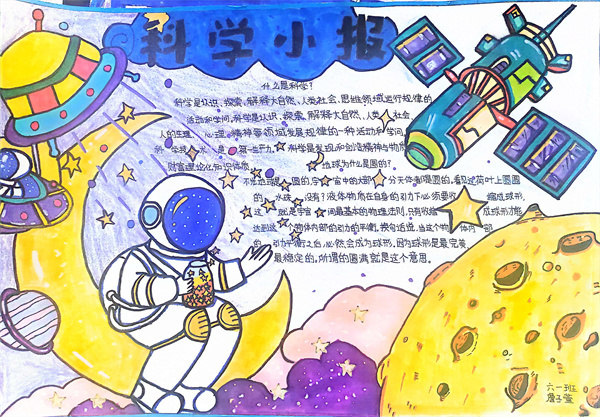 科学小报
什么是科学？
科学是认识、探索、解释大自然、人类社会、思维领域运行规律的
活动和学问，科学是认识、探索、解释大自然、人类社会、
人的生理、心理、精神等领域发展规律的一种活动和学问，
科学技术是第一生产力，科学是发现和创造精神与物质
财富理论化知识体系 地球为什么是圆的？
不光地球是圆的，宇宙中的大部分天体都是圆的，看见过荷叶上圆圆
的水珠没有？液体物质在自身的引力下必须要收缩成球形，
这就是宇宙间最基本的物理法则，只有收缩成球形才能
达到这个物体内部的引力的平衡，换句话说，当这个物体内部
的引力平衡之后，必然会成为球形，因为球形是最完美
最稳定的，所谓的圆满就是这个意思。
六一班